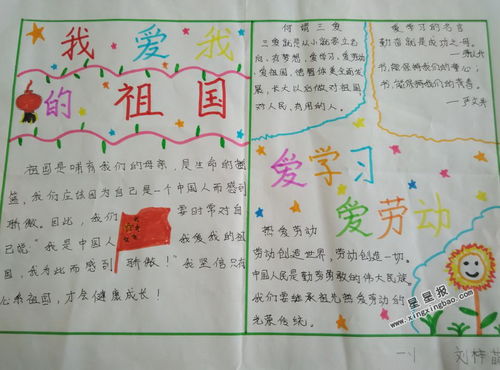 我爱我
的祖国
祖国是哺育我们的母亲,是生命的摇
篮,我们应该因为自己是一个中国人而感到
骄傲。因此,我们要时常对自
己说:"我是中国人 我爱我的祖
国,我为此而感到骄傲!"我坚信只有
心系祖国,才会健康成长!
何谓三爱
三爱就是从小就要立志
向,有梦想,爱学习,爱劳动
爱祖国,德智体美全面发
展,长大以后做对祖国
对人民,有用的人。
爱学习的名言
勤奋就是成功之母。
书,能保持我们的童心;
书,能保持我们的青春。
——严文井
爱学习
爱劳动
热爱劳动
劳动创造世界,劳动创造一切。
中国人民是勤劳勇敢的伟大民族
我们要继承祖先热爱劳动的
光荣传统。
星星报
www.xingxingbao.com
一、1 刘梓